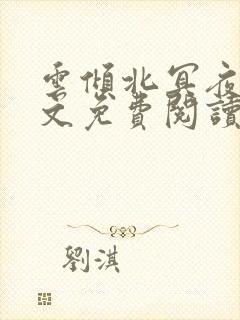 雲傾北冥夜
文免費閱讀
劉淇